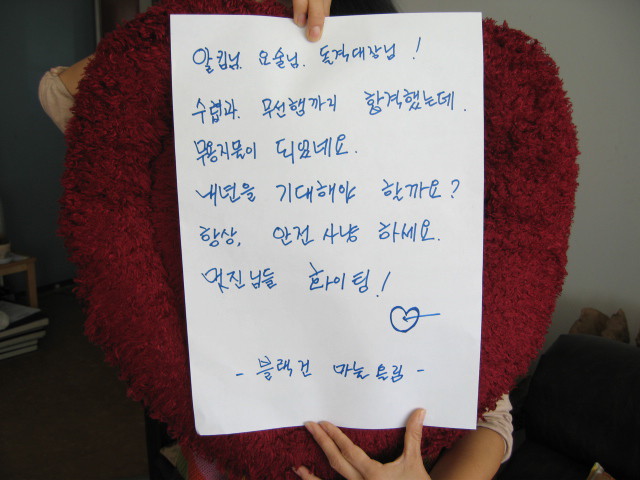 알킬님. 요술님. 돌격대장님!
수렵과. 무선햄까지 합격했는데.
무용지물이 되였네요.
내년을 기대해야 할까요?
항상, 안전 사냥 하세요.
멋진님들 화이팅!
- 블랙건 마눌 올림 -